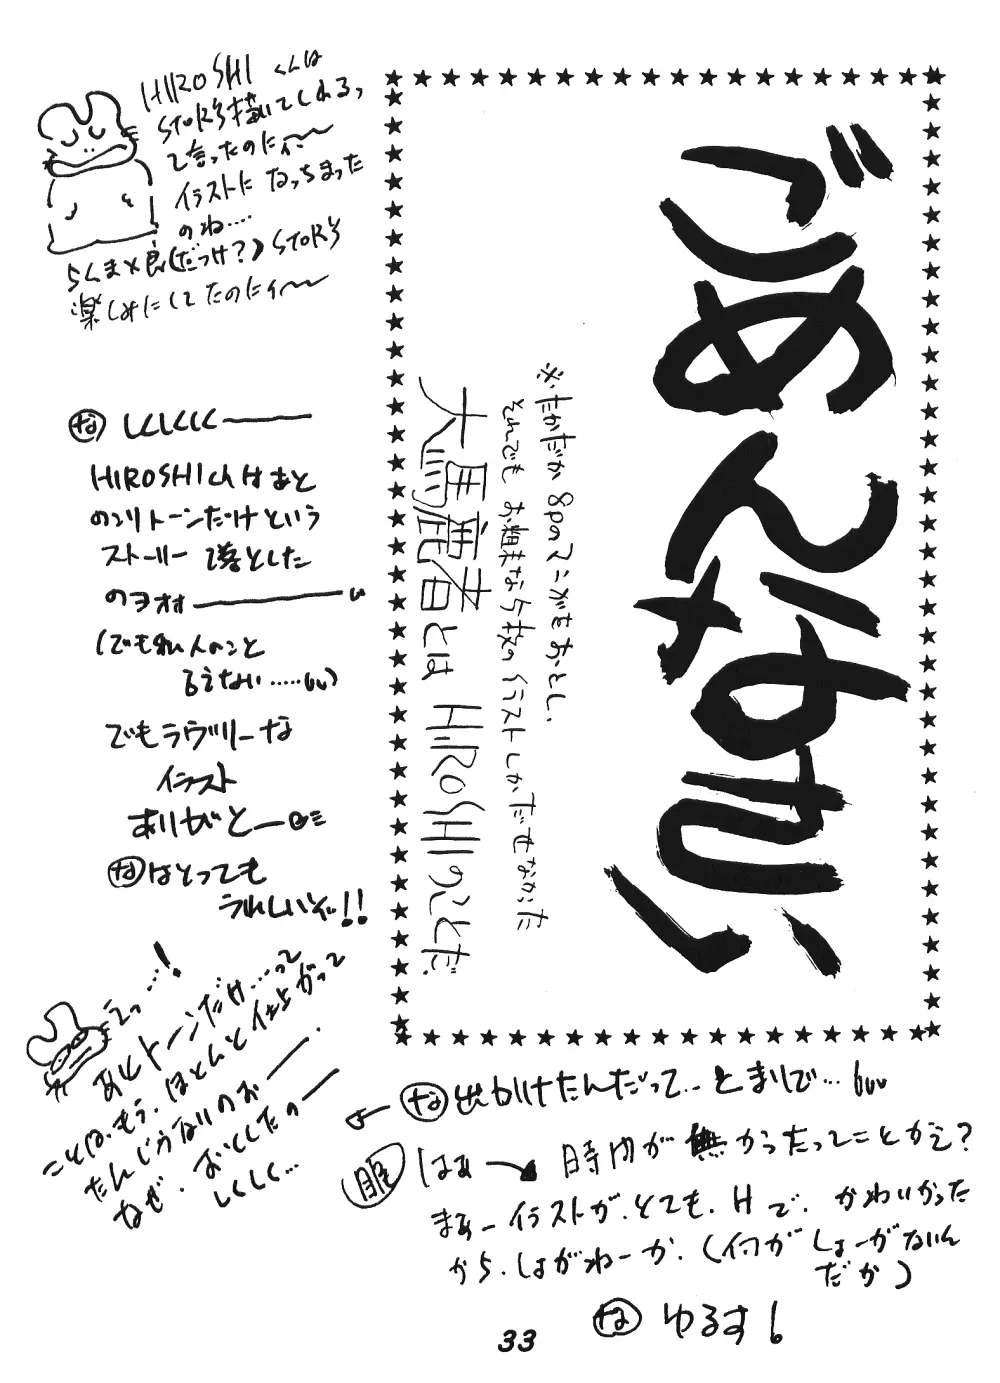 HIROSHIくんは
STORY描いてくれる、
て言ったのにィ〜
イラストになっちまった
のね……
らんま×良(だっけ?)STORY
楽しみにしてたのにィ〜
な しくしくしく———
HIROSHIくんはあと
のこりトーンだけという
ストーリーで落とした
のヲォォ———
(でも私、人のこと
言えない……)
でもラヴリーな
イラスト
ありがと—
なはとっても
うれしいぞ!!
えっ…!
あとトーンだけ…って
ことは、もう、ほとんど仕上がって
たんじゃないのぉ——
なぜ、おとしたの——
しくしく…
ごめんなさい
※たかだか8pのマンガをおとし、
それでもお粗末な5枚のイラストしかだせなかった
大馬鹿者とは HIROSHIのことだ
な 出かけてたんだって…とまりで…
服 はぁ〜 時間が無かったってことがえ?
まぁーイラストが、とても、Hで、かわいかった
から、しょがねーか、(何がしょーがないん
だか)
な ゆるす!
33